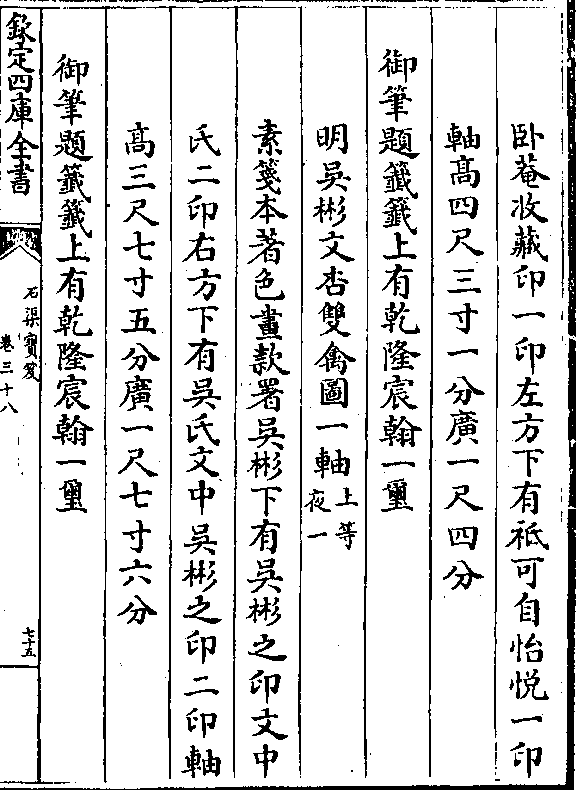 卧菴收藏印一印左方下有祗可自怡悦一印
軸髙四尺三寸一分廣一尺四分
御筆題籤籤上有乾隆宸翰一璽
明吳彬文杏雙禽圖一軸上等
夜一
素箋本著色畫款署吳彬下有吳彬之印文中
氏二印右方下有吳氏文中吳彬之印二印軸
髙三尺七寸五分廣一尺七寸六分
御筆題籤籤上有乾隆宸翰一璽
欽定四庫全書
石渠寶笈
卷三十八
七十五